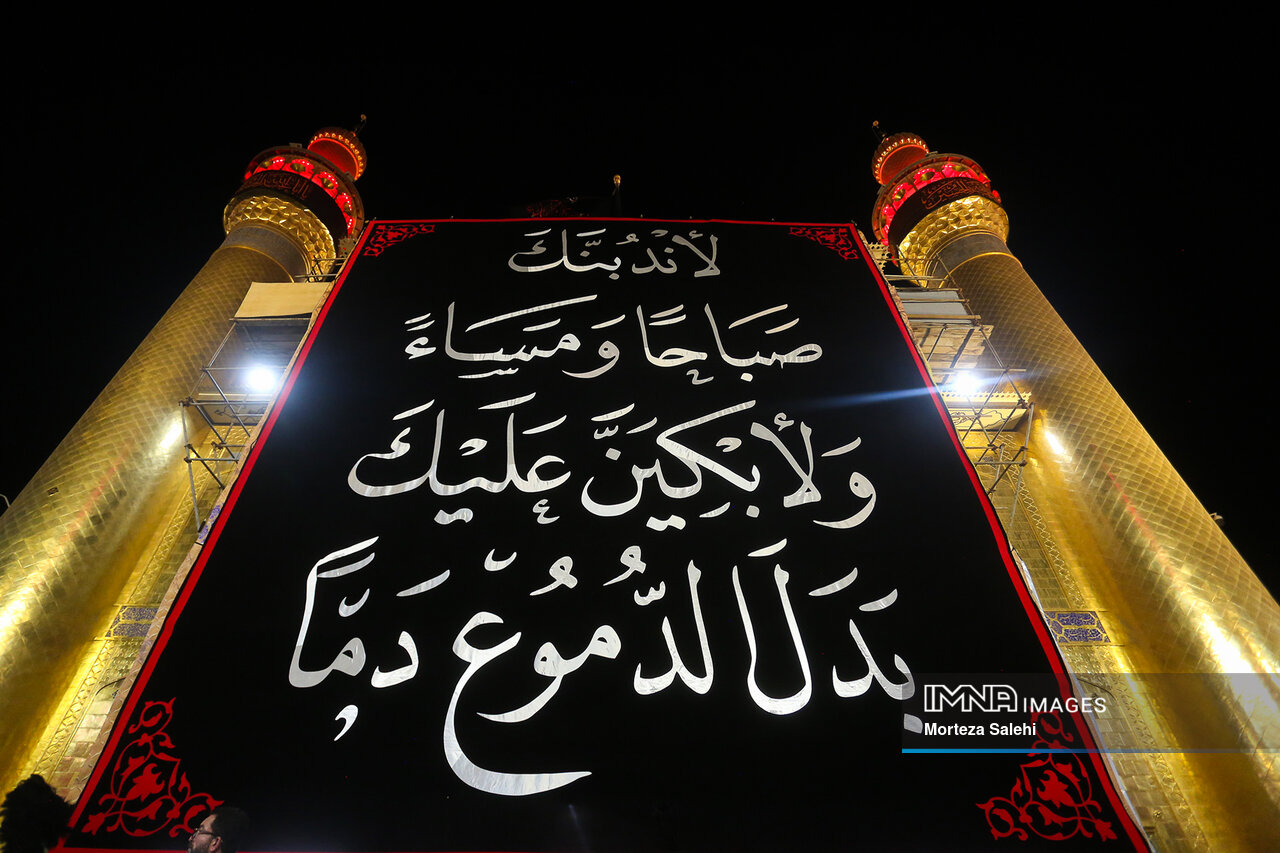 لأندبنك
صباحًا ومَسَاءً
وَلَأَبكِيَنَّ عَلَيكَ
بَدَلَ الدُّمُوعِ دَمًا
IMNA IMAGES
Morteza Salehi